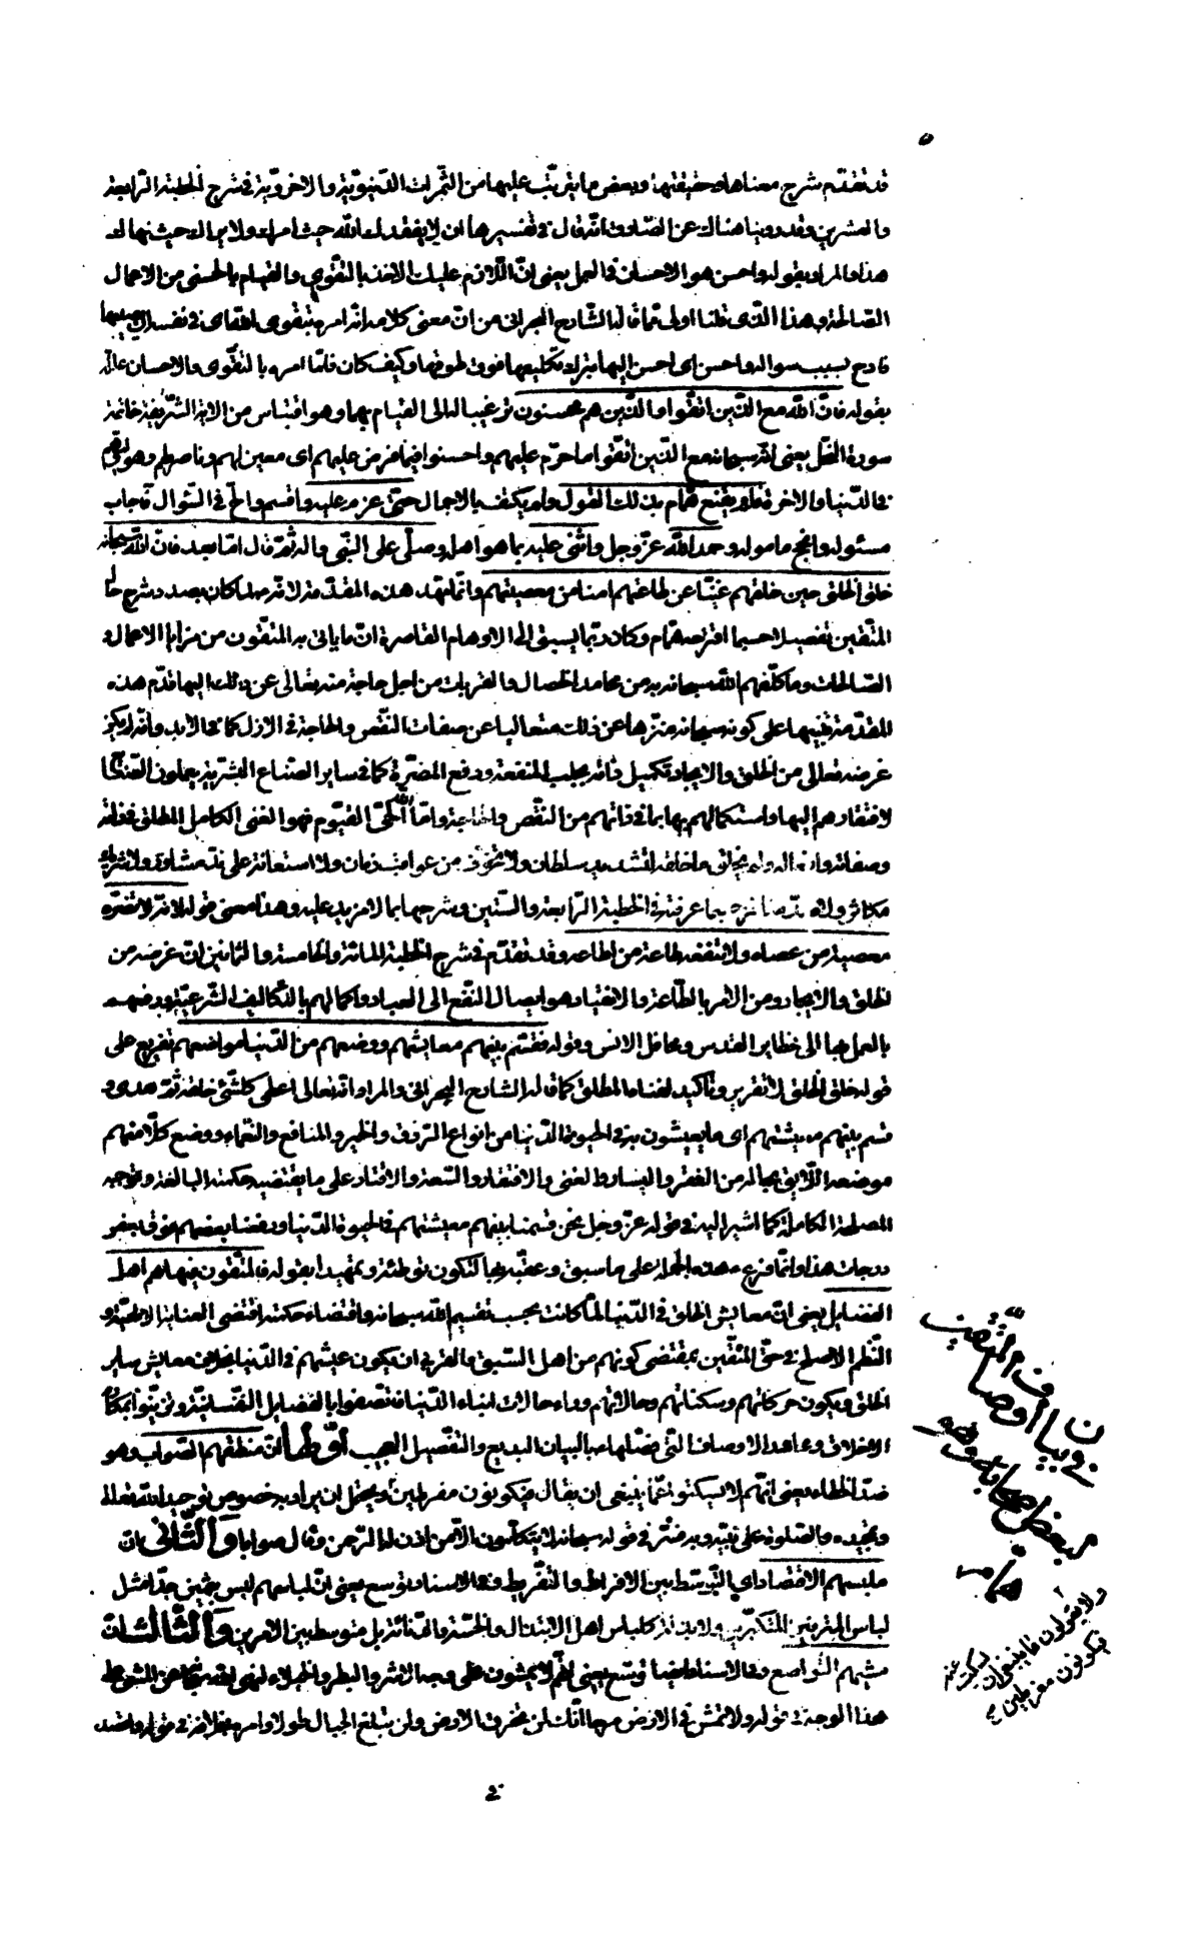 ٥
قد تقدّم شرح معناها وحقيقتها وبعض ما يترتّب عليها من الثّمرات الدّنيويّة والاخرويّة فى شرح الخطبة الرّابعة
والعشرين وقد روينا هناك عن الصّادق انّه قال فى تفسيرها ان لا يفقدك اللّه حيث امرك ولا يراك حيث نهاك
هذا والمراد بقوله واحسن هو الاحسان فى العمل يعنى انّ اللّازم عليك الاخذ بالتّقوى والقيام بالحسنى من الاعمال
الصّالحة وهذا الّذى قلنا اولى ممّا قاله الشّارح البحرانى من انّ معنى كلامه انّه امره بتقوى اللّه اى فى نفسه ان يصيبها
فادح بسبب سواله واحسن اى احسن اليها بترك تكليفها فوق طوقها وكيف كان فلمّا امره بالتّقوى والاحسان علّله
بقوله فانّ اللّه مع الّذين اتّقوا والّذين هم محسنون ترغيبا له الى القيام بهما وهو اقتباس من الاية الشّريفة خاتمة
سورة النّحل يعنى انّه سبحانه مع الّذين اتّقوا ما حرّم عليهم واحسنوا فيما فرض عليهم اى معين لهم وناصرهم وهو وليّهم
فى الدّنيا والاخرة فلم يقنع همّام بذلك القول ولم يكتف بالاجمال حتّى عزم عليه واقسم والحّ فى السّؤال فاجاب
مسئوله وانجح ماموله وحمد اللّه عزّ وجل واثنى عليه بما هو اهله وصلّى على النّبى واله ثمّ قال امّا بعد فانّ اللّه سبحانه
خلق الخلق حين خلقهم غنيّا عن طاعتهم امنا من معصيتهم وانّما مهّد هذه المقدّمة لانّه لمّا كان بصدد شرح حال
المتّقين تفصيلا حسبما اقترحه همّام وكاد ربّما يسبق الى الاوهام القاصرة انّ ما ياتى به المتّقون من مزايا الاعمال و
الصّالحات وما كلّفهم اللّه سبحانه به من محامد الخصال والقربات من اجل حاجة منه تعالى عن ذلك اليها قدّم هذه
المقدّمة تنبيها على كونه سبحانه منزّها عن ذلك متعاليا عن صفات النّقص والحاجة فى الازل كما فى الابد وانّه لم يكن
غرضه تعالى من الخلق والايجاد تكميل ذاته بجلب المنفعة ودفع المضرّة كما فى ساير الصنّاع البشريّة يعملون الصّنايع
لافتقارهم اليها واستكمالهم بها بما فى ذاتهم من النّقص والحاجة وامّا اللّه الحىّ القيّوم فهو الغنى الكامل المطلق فى ذاته
وصفاته وافعاله ولم يخلق ما خلقه لتشديد سلطان ولا تخوّف من عواقب زمان ولا استعانة على ندّ مشاور ولا شريك
مكاثر ولا ضدّ منافر بما عرفته فى الخطبة الرّابعة والستّين وشرحها بما لا مزيد عليه وهذا معنى قوله لانّه لا تضرّه
معصية من عصاه ولا تنفعه طاعة من اطاعه وقد تقدّم فى شرح الخطبة المائة والخامسة والثمانين انّ غرضه من
الخلق والايجاد ومن الامر بالطّاعة والانقياد هو ايصال النّفع الى العباد واكمالهم بالتّكاليف الشّرعيّة ورفعهم
بالعمل بها الى حظاير القدس ومحافل الانس وقوله فقسّم بينهم معايشهم ووضعهم من الدّنيا مواضعهم تفريع على
قوله خلق الخلق لا تقرير وتأكيد لغناه المطلق كما قاله الشارح البحرانى والمراد انّه تعالى اعطى كلّ شىء خلقه ثمّ هدى و
قسم بينهم معيشتهم اى ما يعيشون به فى الحيوة الدّنيا من انواع الرّزق والخير والمنافع والنّعماء ووضع كلّا منهم
موضعه اللّايق بحاله من الفقر واليسار والغنى والافتقار والسّعة والاقتار على ما يقتضيه حكمته البالغة وتوجبه
المصلحة الكاملة كما اشير اليه فى قوله عزّ وجل نحن قسمنا بينهم معيشتهم فى الحيوة الدّنيا ورفعنا بعضهم فوق بعض
درجات هذا وانّما فرع هذه الجملة على ما سبق وعقّبه بها لتكون توطئة وتمهيدا بقوله فالمتّقون فيها هم اهل
الفضايل يعنى انّ معايش الخلق فى الدّنيا لمّا كانت بحسب تقسيم اللّه سبحانه واقتضاء حكمته اقتضى العناية الالهيّة و
النّظم الاصلح فى حقّ المتّقين بمقتضى كونهم من اهل السّبق والقربى ان يكون عيشهم فى الدّنيا بخلاف معايش ساير
الخلق ويكون حركاتهم وسكناتهم وحالاتهم وراء حالات ابناء الدّنيا فاتّصفوا بالفضايل النّفسانيّة وتزيّنوا بمكارم
الاخلاق ومحامد الاوصاف الّتى فصّلها بالبيان البديع والتّفصيل العجيب اوّلها انّ منطقهم الصّواب وهو
ضدّ الخطاء يعنى انّهم لا يسكتون عمّا ينبغى ان يقال فيكونون مفرطين ويحتمل ان يراد به خصوص توحيد اللّه تعالى
وتمجيده والصّلوة على نبيّه وبه فسّر فى قوله سبحانه لا يتكلّمون الّا من اذن له الرّحمن وقال صوابا وَالثّانى انّ
ملبسهم الاقتصاد اى التّوسّط بين الافراط والتّفريط وفى الاسناد توسّع يعنى انّ لباسهم ليس بثمين جدّا مثل
لباس المترفين المتكبّرين ولا بمبتذل كلباس اهل الابتذال والخسّة والدّنائة بل متوسّط بين الامرين وَالثّالث انّ
مشيهم التّواضع وفى الاسناد ايضا توسّع يعنى انّهم لا يمشون على وجه الاشر والبطر والخيلاء لنهى اللّه سبحانه عن المشى على
هذا الوجه فى قوله ولا تمش فى الارض مرحا انّك لن تخرق الارض ولن تبلغ الجبال طولا وامره بخلافه فى قوله واقصد
فى
فى بيان اوصاف المتّقين
ولا يقولون ما ينبغى ان يسكت عنه
فيكونون مفرطين